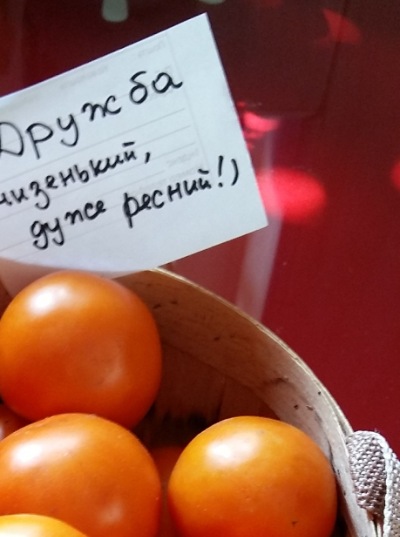 Дружба
низенький,
дуже ресний!)